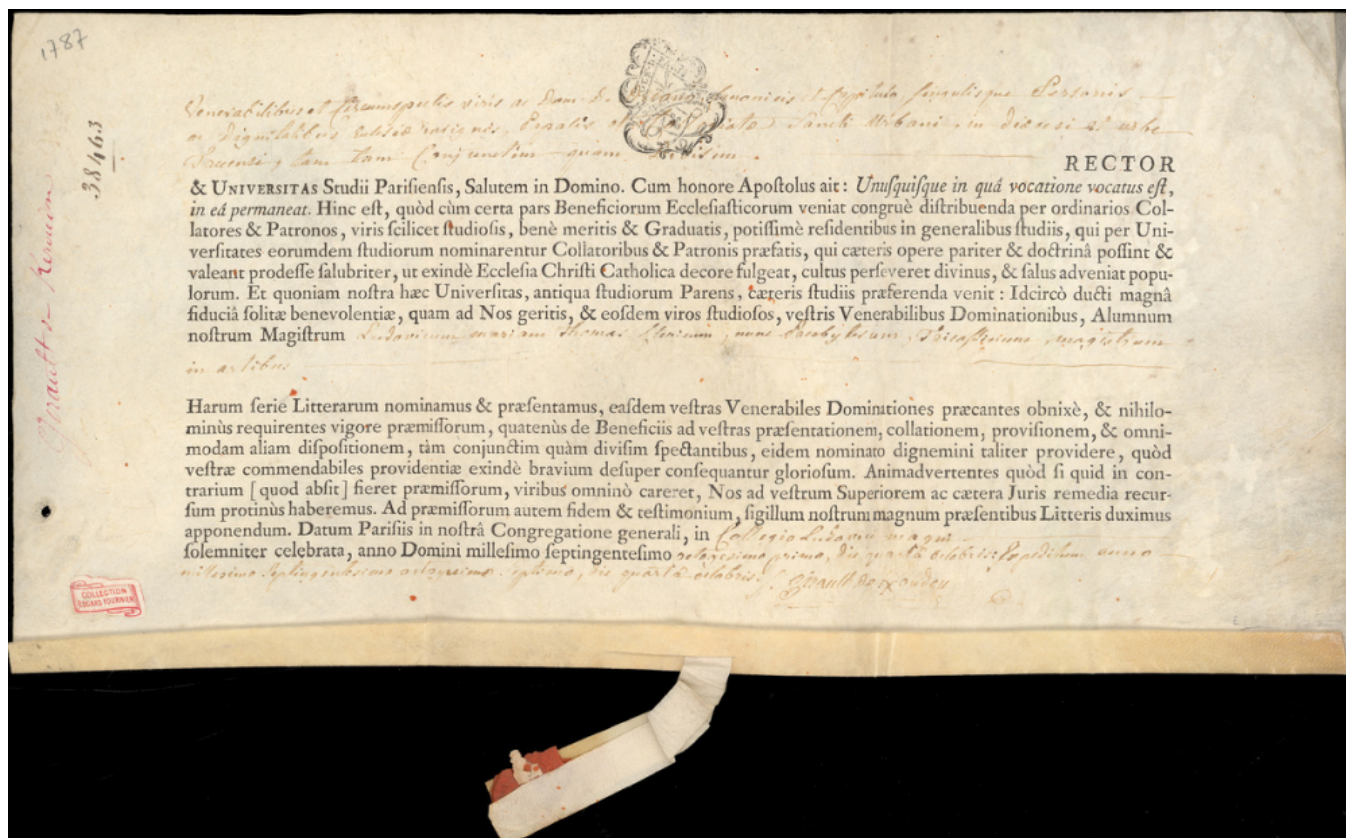 1787
38463
Venerabilibus et Circumspectis viris ac Dom. D. Decano, Canonicis et Capitulo, singulisque Personis
ac Dignitatibus Ecclesiæ insignis, Regalis et Collegiatæ Sancti Urbani, in diocesi et urbe
Trecensi, tam tam Conjunctim quam divisim.
RECTOR
& UNIVERSITAS Studii Pariſienſis, Salutem in Domino. Cum honore Apoſtolus ait : Unuſquiſque in quâ vocatione vocatus eſt,
in eâ permaneat. Hinc eſt, quòd cùm certa pars Beneficiorum Eccleſiaſticorum veniat congruè diſtribuenda per ordinarios Col-
latores & Patronos, viris ſcilicet ſtudioſis, benè meritis & Graduatis, potiſſimè reſidentibus in generalibus ſtudiis, qui per Uni-
verſitates eorumdem ſtudiorum nominarentur Collatoribus & Patronis præfatis, qui cæteris opere pariter & doctrinâ poſſint &
valeant prodeſſe ſalubriter, ut exindè Eccleſia Chriſti Catholica decore fulgeat, cultus perſeveret divinus, & ſalus adveniat popu-
lorum. Et quoniam noſtra hæc Univerſitas, antiqua ſtudiorum Parens, cæteris ſtudiis præferenda venit : Idcircò ducti magnâ
fiduciâ ſolitæ benevolentiæ, quam ad Nos geritis, & eoſdem viros ſtudioſos, veſtris Venerabilibus Dominationibus, Alumnum
noſtrum Magiſtrum Ludovicum mariam Thomas, nunc, magistrum
in artibus
Harum ſerie Litterarum nominamus & præſentamus, eaſdem veſtras Venerabiles Dominationes præcantes obnixè, & nihilo-
minùs requirentes vigore præmiſſorum, quatenùs de Beneficiis ad veſtras præſentationem, collationem, proviſionem, & omni-
modam aliam diſpoſitionem, tàm conjunctim quàm diviſim ſpectantibus, eidem nominato dignemini taliter providere, quòd
veſtræ commendabiles providentiæ exindè bravium deſuper conſequantur glorioſum. Animadvertentes quòd ſi quid in con-
trarium [ quod abſit ] fieret præmiſſorum, viribus omninò careret, Nos ad veſtrum Superiorem ac cætera Juris remedia recur-
ſum protinùs haberemus. Ad præmiſſorum autem fidem & teſtimonium, ſigillum noſtrum magnum præſentibus Litteris duximus
apponendum. Datum Pariſiis in noſtrâ Congregatione generali, in Collegio Ludovici magni
ſolemniter celebrata, anno Domini milleſimo ſeptingenteſimo octogesimo primo, die quartâ octobris: Expeditum anno
millesimo septingentesimo octogesimo septimo, die quartâ octobris.
COLLECTION
EDGARD FOURNIER